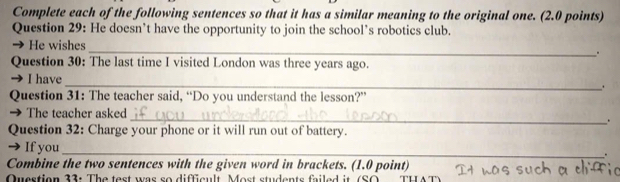 Complete each of the following sentences so that it has a similar meaning to the original one. (2.0 points)
Question 29: He doesn't have the opportunity to join the school's robotics club.
→ He wishes
Question 30: The last time I visited London was three years ago.
→ I have
Question 31: The teacher said, "Do you understand the lesson?"
→ The teacher asked if you understood the lesson
Question 32: Charge your phone or it will run out of battery.
→ If you
Combine the two sentences with the given word in brackets. (1.0 point)
It was such a diffic
Question 33: The test was so difficult. Most students failed it. (SO THAT)